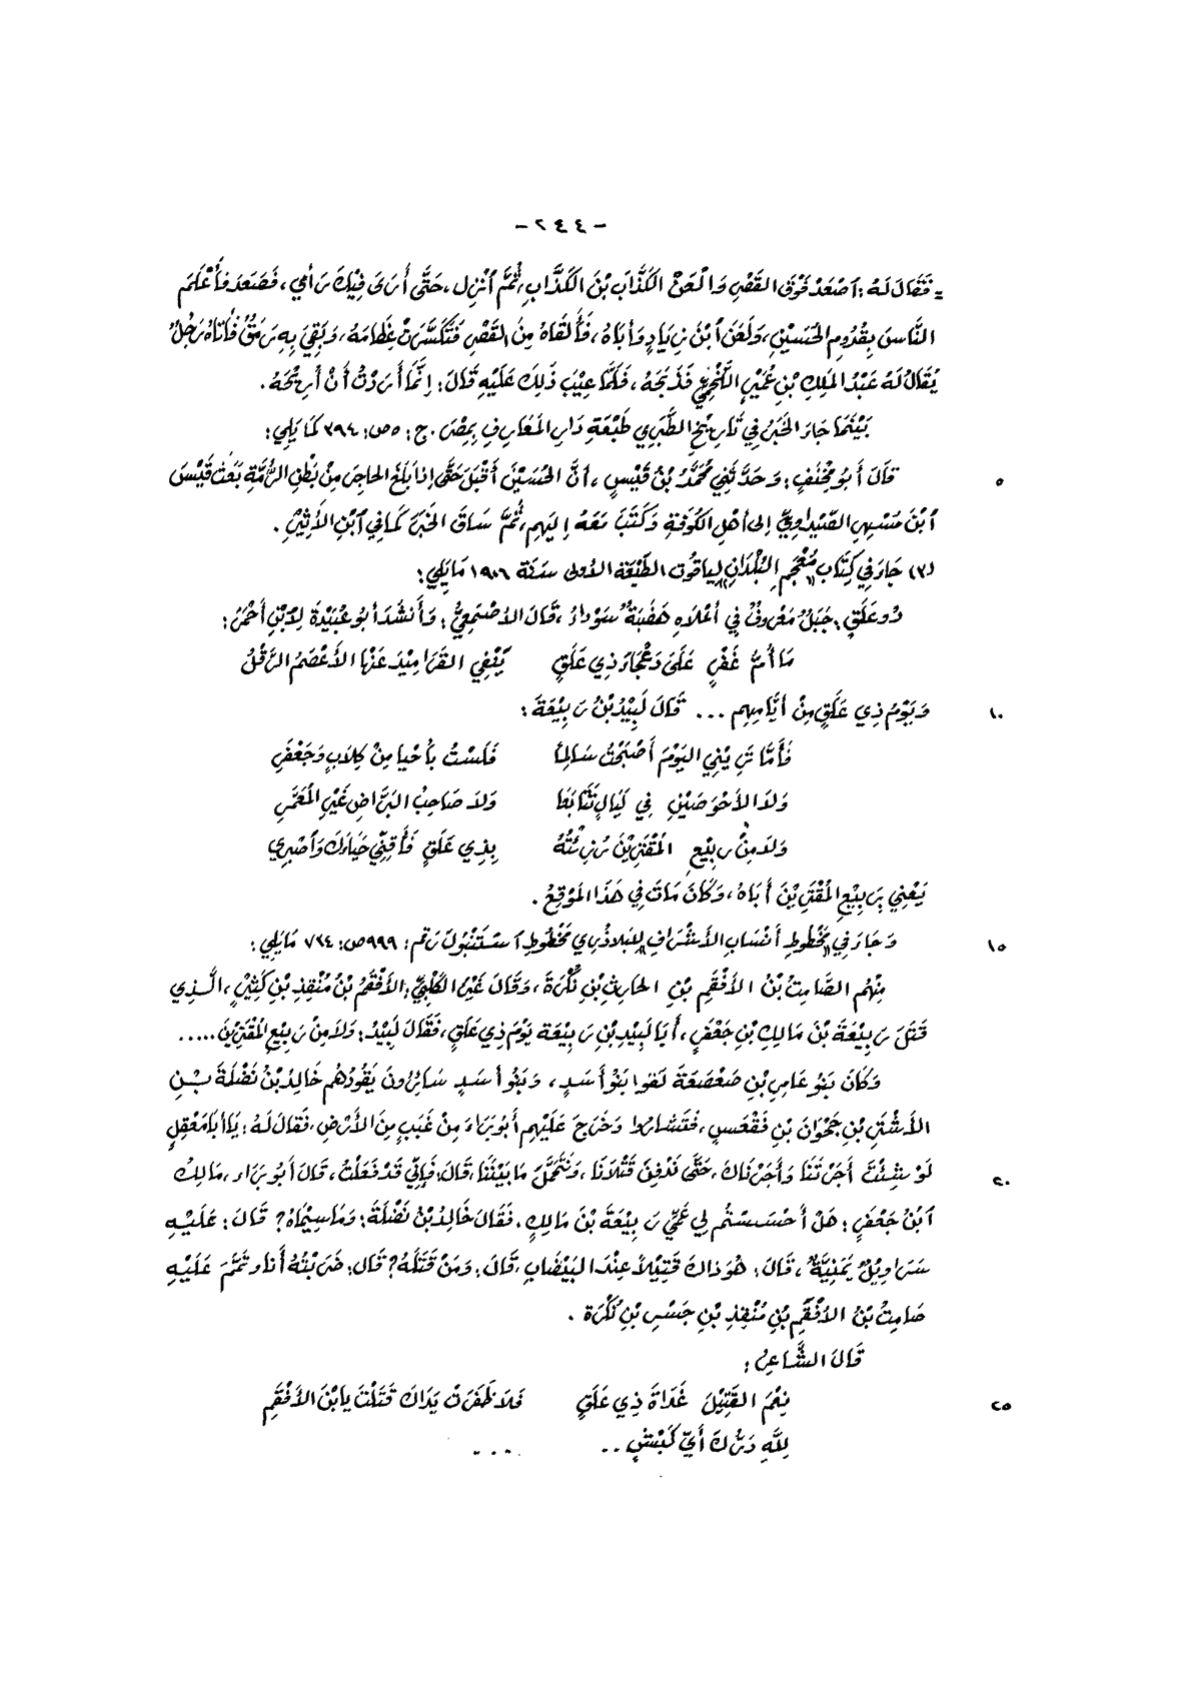 - ٢٤٤ -
= فَقَالَ لَهُ: ٱصْعَدْ فَوْقَ القَصْرِ وَالْعَنْ الكَذَّابَ بْنَ الكَذَّابِ، ثُمَّ ٱنْزِل، حَتَّى أُرَى فِيْكَ رَأْيِي، فَصَعَدَ فَأَعْلَمَ
النَّاسَ بِقُدُومِ الحُسَيْنِ، وَلَعَنَ ٱبْنَ زِيَادٍ وَأَبَاهُ، فَأَلْقَاهُ مِنَ القَصْرِ فَتَكَسَّرَتْ عِظَامَهُ، وَبَقِيَ بِهِ رَمَقٌ فَأَتَاهُ رَجُلٌ
يُقَالُ لَهُ عَبْدُ المَلِكِ بْنِ عُمَيْرٍ اللَّخْمِيِّ فَذَبَحَهُ، فَلَمَّا عِيْبَ ذَلِكَ عَلَيْهِ قَالَ: إِنَّمَا أَرَدْتُ أَنْ أُرِيْحَهُ.
بَيْنَمَا جَاءَ الخَبَرُ فِي تَارِيْخِ الطَّبَرِي طَبْعَةِ دَارِ المَعَارِفِ بِمِصْرَ. ج: ٥ ص: ٣٩٤ كَمَا يَلِي:
قَالَ أَبُو مِخْنَفٍ: وَحَدَّثَنِي مُحَمَّدُ بْنُ قَيْسٍ، أَنَّ الحُسَيْنَ أَقْبَلَ حَتَّى إِذَا بَلَغَ الحَاجِرَ مِنْ بَطْنِ الرُّمَّةِ بَعَثَ قَيْسَ ٥
ٱبْنَ مُسْهِرٍ الصَّيْدَاوِيَّ إِلَى أَهْلِ الكُوفَةِ وَكَتَبَ مَعَهُ إِلَيْهِم، ثُمَّ سَاقَ الخَبَرَ كَمَا فِي ٱبْنِ الأَثِيْرِ.
(٣) جَاءَ فِي كِتَابِ مُعْجَمِ البُلْدَانِ لِيَاقُوت الطَّبْعَة الأُولَى سَنَة ١٩٠٦ مَا يَلِي:
ذُو عَلَقٍ، جَبَلٌ مَعْرُوفٌ فِي أَعْلَاهِ هَضْبَةٌ سَوْدَاءُ، قَالَ الأَصْمَعِيُّ: وَأَنْشَدَ أَبُو عُبَيْدَةَ لِابْنِ أَحْمَرَ:
مَا أُمُّ غَفْرٍ عَلَى دَعْجَاءَ ذِي عَلَقٍ يَنْفِي القَرَامِيْدَ عَنْهَا الأَعْصَمُ الوَقْلُ
وَيَوْمُ ذِي عَلَقٍ مِنْ أَيَّامِهِم ... قَالَ لَبِيْدُ بْنُ رَبِيْعَةَ: ١٠
فَأَمَّا تَرِيْنِي اليَوْمَ أَصْبَحْتُ سَالِمًا فَلَسْتُ بِأَحْيَا مِنْ كِلَابٍ وَجَعْفَرِ
وَلَا الأَحْوَصَيْنِ فِي لَيَالٍ تَتَابَعَا وَلَا صَاحِبُ البَرَّاضِ غَيْرِ المُغَمَّرِ
وَلَا مِنْ رَبِيْعِ المُقْتِرِيْنَ رُزِئْتُهُ بِذِي عَلَقٍ فَأَقْنِي حَيَاءَكَ وَٱصْبِرِي
يَعْنِي رَبِيْعِ المُقْتِرِيْنَ أَبَاهُ، وَكَانَ مَاتَ فِي هَذَا المَوْقِعِ.
وَجَاءَ فِي مَخْطُوطِ أَنْسَابِ الأَشْرَافِ لِلبَلَاذُرِي مَخْطُوطِ ٱسْتَنْبُولَ رَقم: ٩٩٩ ص: ٧٢٤ مَا يَلِي: ١٥
مِنْهُم الصَّامِتُ بْنُ الأَفْقَمِ بْنِ الحَارِثِ بْنِ نُكْرَةَ، وَقَالَ غَيْرُ الكَلْبِيِّ: الأَفْقَمُ بْنُ مُنْقِذِ بْنِ كَثِيْرٍ، الَّذِي
قَتَلَ رَبِيْعَةَ بْنَ مَالِكِ بْنِ جَعْفَرٍ، أَبَا لَبِيْدِ بْنِ رَبِيْعَة يَوْمَ ذِي عَلَقٍ، فَقَالَ لَبِيْدٌ: وَلَا مِنْ رَبِيْعِ المُقْتِرِيْنَ .....
وَكَانَ بَنُو عَامِرِ بْنِ صَعْصَعَةَ لَقُوا بَنُو أَسَدٍ، وَبَنُو أَسَدٍ سَائِرُونَ يَقُودُهُم خَالِدُ بْنُ نَضْلَةَ بْنِ
الأَشْتَرِ بْنِ جَحْوَانَ بْنِ فَقْعَسٍ، فَتَسَارَوا وَخَرَجَ عَلَيْهِم أَبُو بَرَاءَ مِنْ غَيَبٍ مِنَ الأَرْضِ، فَقَالَ لَهُ: يَا أَبَا مَعْقِلٍ
لَوْ شِئْتَ أَجَرْتَنَا وَأَجَرْنَاكَ، حَتَّى نَدْفِنَ قَتْلَانَا، وَنَتَحَمَّلَ مَا بَيْنَنَا، قَالَ: فَإِنِّي قَدْ فَعَلْتُ، قَالَ أَبُو بَرَاء، مَالِكُ ٢٠
ٱبْنُ جَعْفَرٍ: هَلْ أَحْسَسْتُم لِي عَمِّي رَبِيْعَةَ بْنَ مَالِكٍ، فَقَالَ خَالِدُ بْنُ نَضْلَةَ: وَمَا سِيْمَاهُ؟ قَالَ: عَلَيْهِ
سَرَاوِيْلٌ يَمَنِيَّةٌ، قَالَ: هُوَ ذَاكَ قَتِيْلًا عِنْدَ البَيْضَاءِ، قَالَ: وَمَنْ قَتَلَهُ؟ قَالَ: ضَرَبْتُهُ أَنَا وَتَمَّمَ عَلَيْهِ
صَامِتُ بْنُ الأَفْقَمِ بْنِ مُنْقِذِ بْنِ جَسْرِ بْنِ نُكْرَةَ.
قَالَ الشَّاعِرُ:
نِعْمَ القَتِيْلَ غَدَاةَ ذِي عَلَقٍ فَلَا ظَفَرَتْ يَدَاكَ قَتَلْتَ يَا بْنَ الأَفْقَمِ ٢٥
لِلَّهِ دَرُّكَ أَيِّ كَبْشٍ .. ...